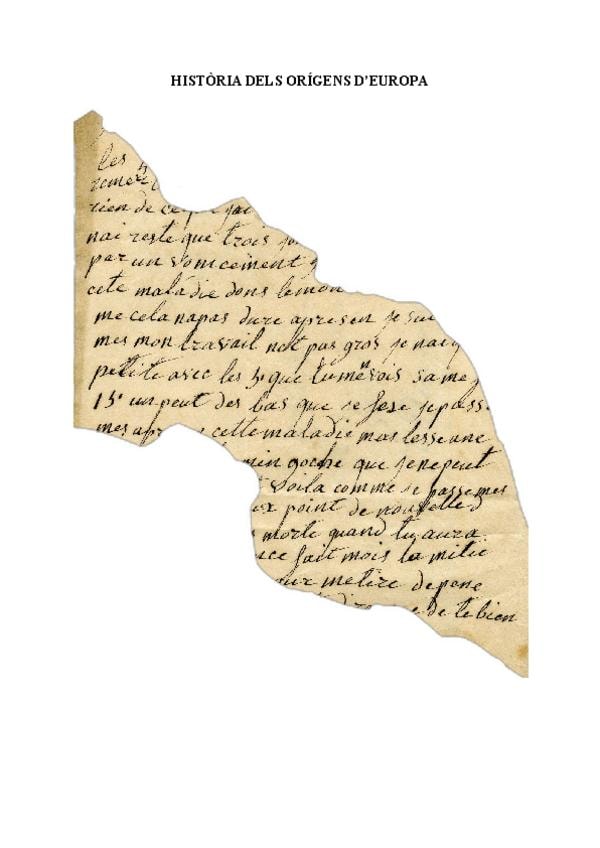 HISTÒRIA DELS ORÍGENS D'EUROPA
les
rien de
nai reste que trois
par un vomicement
cete maladie dons lemon
me cela napas dure apres en je sui
mes mon travail net pas gros je nai
petite avec les 5 que tumevois same
15 un peut des bas que je fese je pass
mes cette maladie mas lesse une
min goche que je ne peut
voila comme se passe mes
point de nouvelle d
morte quand tu aura
fait mois la mitie
our metire de pene
de te bien